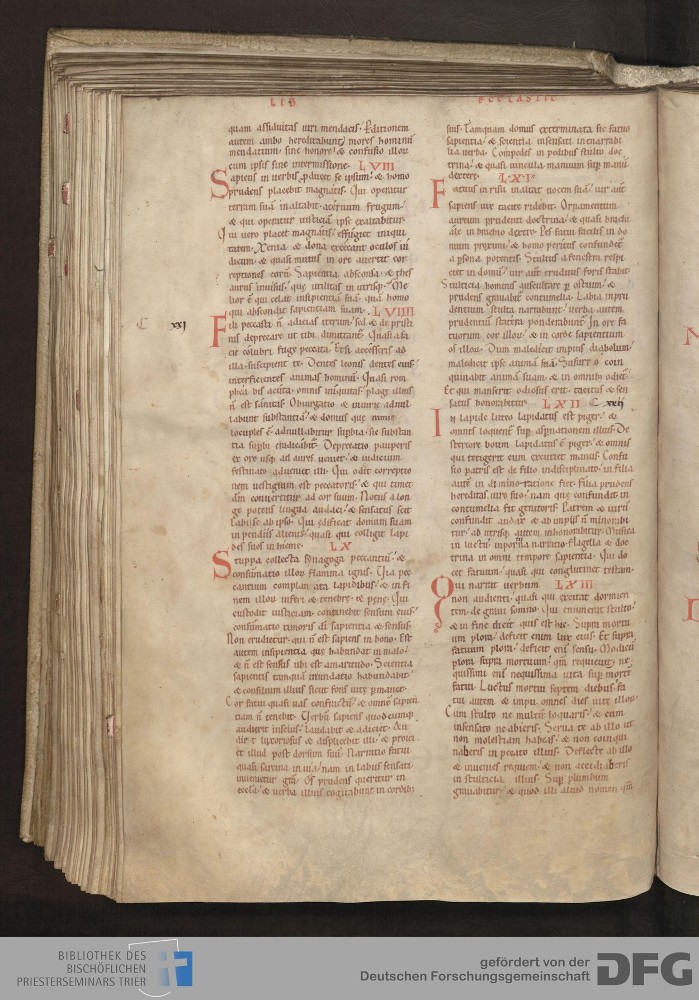 LIB
ECCLASTIC
quam assiduitas uiri mendacis. Perditionem
autem ambo hereditabunt; mores hominum
mendatium sine honore. & confusio illor
cum ipsis sine intermissione. LVIII
Sapiens in uerbis pducet se ipsum. & homo
prudens placebit magnatis. Qui operatur
terram suā inaltabit aceruum frugum.
& qui operatur iusticiā ipse exaltabitur.
Qui uero placet magnatis. effugiet iniqui
tatem. Xenia & dona excecant oculos iu
dicum. & quasi mutus in ore auertit cor
reptiones eorū. Sapientia absconsa. & thes
aurus inuisus. que utilitas in utrisq;. Me
lior ē qui celat insipientiā suā. quā homo
qui abscondit sapientiam suam. LVIIII
C xxi
Fili peccasti n adicias iterum. sed & de pristi
nis deprecare ut tibi dimittant. Quasi a fa
cie colubri fuge peccata. Et si accesseris ad
illa. suscipient te. Dentes leonis dentes eius.
interficientes animas hominū. Quasi rom
phea bis acuta. omnis iniquitas. plage illius
n est sanitas. Obiurgatio & iniurie adnul
labunt substantiā. & domus que nimis
locuples ē. adnullabitur supbia. sic substan
tia supbi eradicabit. Deprecatio pauperis
ex ore usq; ad aures ueniet. & iudicium
festinato adueniet illi. Qui odit correptio
nem uestigium est peccatoris. & qui timet
dm conuertetur ad cor suum. Notus a lon
ge potens lingua audaci. & sensatus scit
labi se ab ipso. Qui edificat domum suam
inpendiis alienis. quasi qui colligit lapi
des suos in hieme. LX
Stuppa collecta synagoga peccantiū. &
consumatio illor flamma ignis. Via pec
cantium complanata lapidibus. & in fi
nem illor inferi & tenebre. & pene. Qui
custodit iusticiam. continebit sensum eius.
consumatio timoris di sapientia & sensus.
Non erudietur. qui n est sapiens in bono. Est
autem insipientia que habundat in malo.
& n est sensus ubi est amaritudo. Scientia
sapientis tanquā inundatio habundabit
& consilium illius sicut fons uite pmanet.
Cor fatui quasi uas confractū. & omnē sapien
tiam n tenebit. Verbū sapiens quodcumq;
audierit inscius. laudabit & adiciet. Au
diet luxoriosus & displicebit illi. & proici
et illud post dorsum suū. Narratio fatui
quasi sarcina in uia. nam in labiis sensati
inuenietur gra. Os prudens queritur in
eccla. & uerba illius cogitabunt in cordib;
suis. Tamquam domus exterminata sic fatuo
sapientia. & scientia insensati inenarrabi
lia uerba. Compedes in pedibus stulto doc
trina. & quasi uincula manuum sup manū
dexterā. LXI
Fatuus in risu inaltat uocem suā. uir aut
sapiens uix tacite ridebit. Ornamentum
aureum prudenti doctrina. & quasi brachi
ale in brachio dextro. Pes fatui facilis in do
mum proximi. & homo peritus confundetur
a psona potentis. Stultus a fenestra respi
ciet in domū. uir aut eruditus foris stabit.
Stulticia hominis auscultare p ostium. &
prudens grauabit contumelia. Labia inpru
dentium stulta narrabunt. uerba autem
prudentiū statera ponderabunt. In ore fa
tuorum cor illor. & in corde sapientium
os illor. Dum maledicit impius diabolum.
maledicit ipse animā suā. Susurro coin
quinabit animā suam. & in omnib; odiet.
Et qui manserit odiosus erit. tacitus & sen
satus honorabitur. LXII C xxij
In lapide luteo lapidatus est piger. &
omnes loquent sup aspnationem illius. De
stercore boum lapidatus ē piger. & omnis
qui tetigerit eum excutiet manus. Confu
sio patris est de filio indisciplinato. in filia
autē in diminoratione fiet. Filia prudens
hereditas uiro suo. nam que confundit in
contumelia fit genitoris. Patrem & uirū
confundit audax & ab impiis n minorabi
tur. ad utrisq; autem inhonorabitur. Musica
in luctu. inportuna narratio. flagella & doc
trina in omni tempore sapientia. Qui do
cet fatuum. quasi qui conglutinet testam.
Qui narrat uerbum LXIII
non audienti. quasi qui excitat dormien
tem. de graui somno. Qui enumerat stulto.
& in fine dicit quis est hic. Supra mortu
um plora. deficit enim lux eius. Et supra
fatuum plora. deficit enī sensu. Modicū
plora supra mortuum. qm requieuit. ne
quissimi enī nequissima uita sup morte
fatui. Luctus mortui septem diebus. fa
tui autem & impii. omnes dies uite illor.
Cum stulto ne multū loquaris. & cum
insensato ne abieris. Serua te ab illo ut
non molestiam habeas. & non coinqui
naberis in peccato illius. Deflecte ab illo
& inuenies requiem. & non accidiaberis
in stulticia illius. Sup plumbum
grauabitur. & quod illi aliud nomen qm
BIBLIOTHEK DES
BISCHÖFLICHEN
PRIESTERSEMINARS TRIER
gefördert von der
Deutschen Forschungsgemeinschaft
DFG